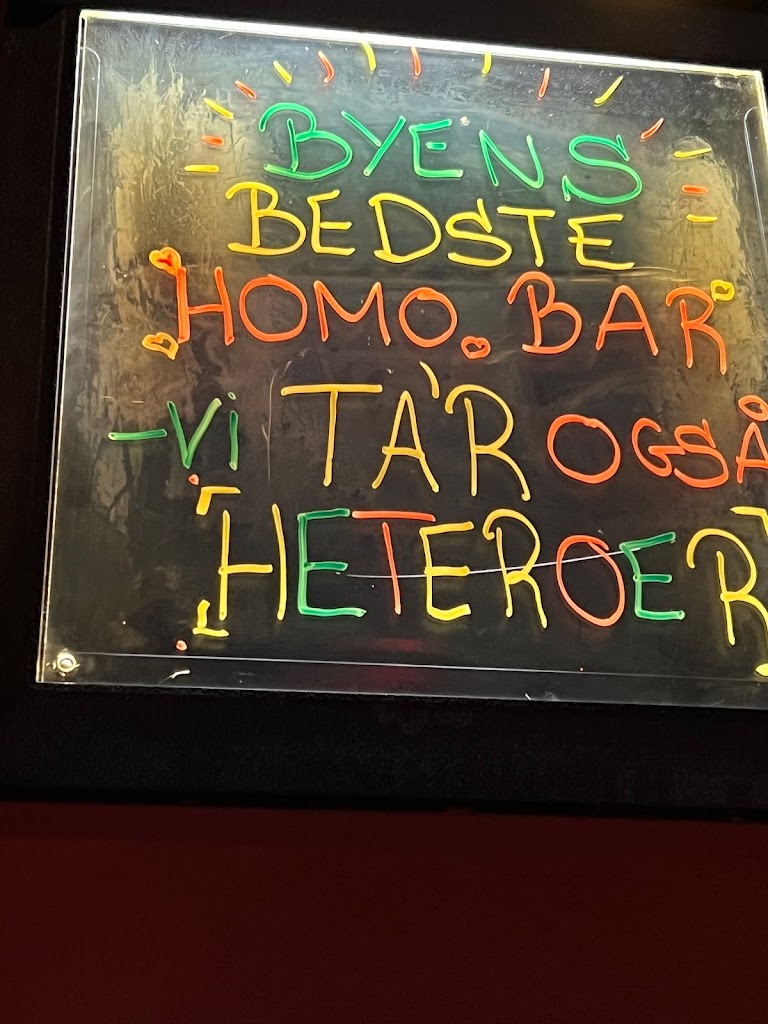 BYENS
BEDSTE
HOMO. BAR
-Vi TA'R OGSÅ
HETEROER